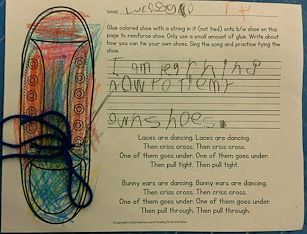 NAME
Glue colored shoe with a string in it (not tied) onto b/w shoe on this
page to reinforce shoe. Only use a small amount of glue. Write about
how you can tie your own shoes. Sing the song and practice tying the
shoe.
I am learning
how to tie my
own shoes.
Laces are dancing. Laces are dancing.
Then criss cross. Then criss cross.
One of them goes under. One of them goes under.
Then pull tight. Then pull tight.
Bunny ears are dancing. Bunny ears are dancing.
Then criss cross. Then criss cross.
One of them goes under. One of them goes under.
Then pull through. Then pull through.